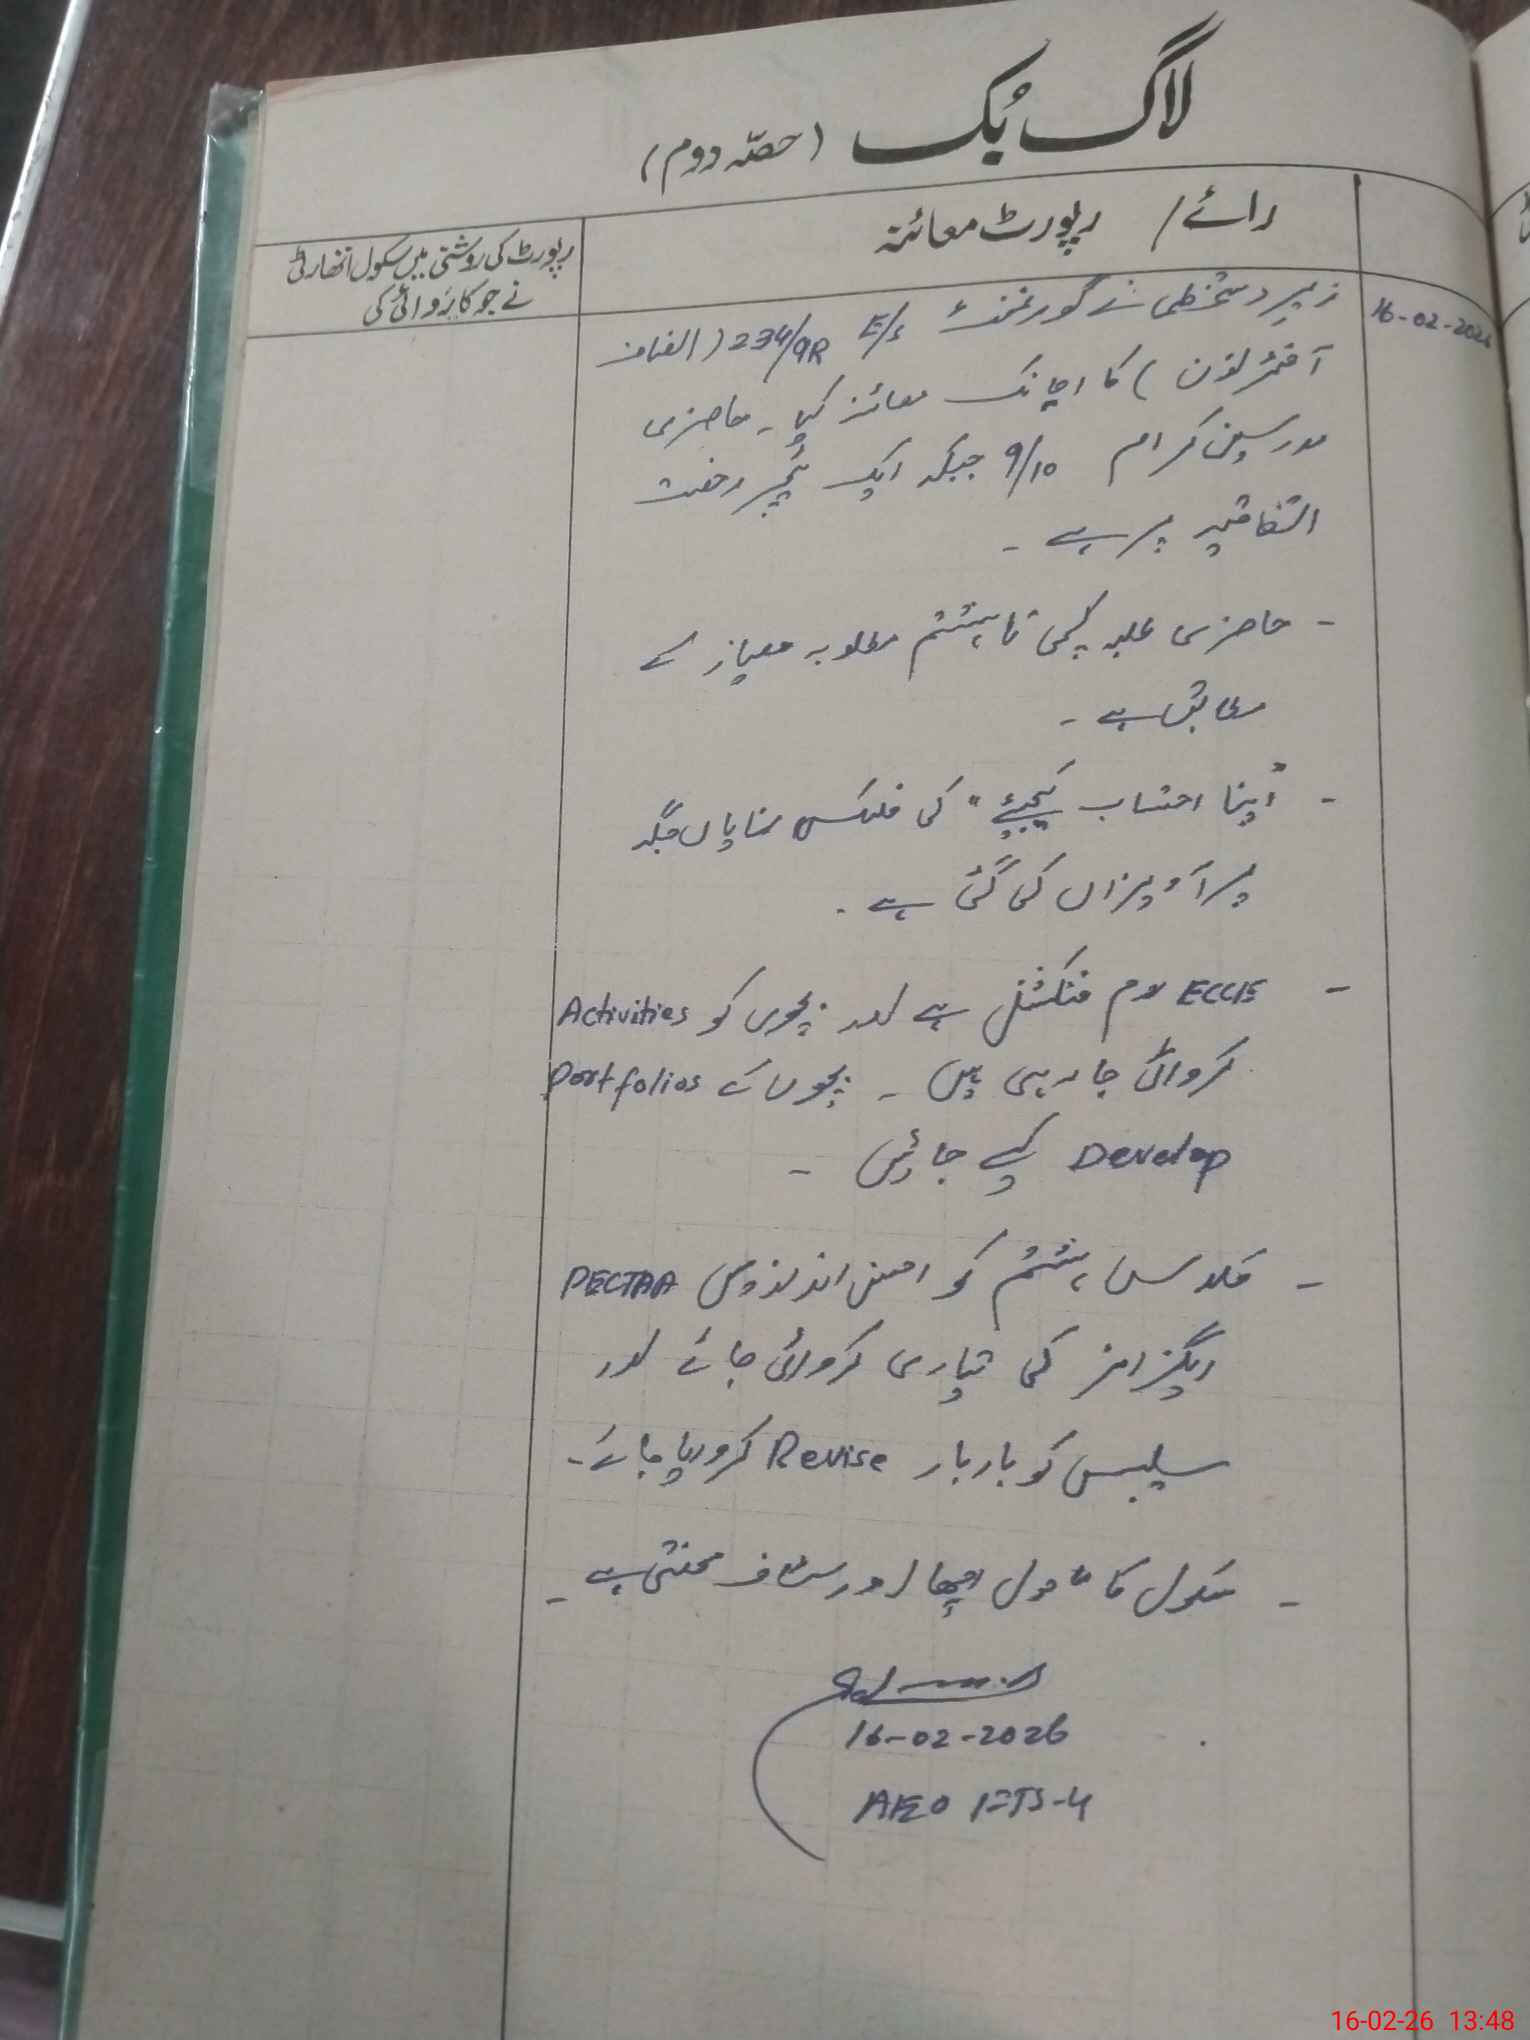 لاگ بُک (حصّہ دوم)
رائے / رپورٹ معائنہ
رپورٹ کی روشنی میں سکول اتھارٹی
نے جو کارَوائی کی
16-02-2026
زیر دستخطی نے گورنمنٹ E/S 234/9R (الفاف
آفٹرنون) کا اچانک معائنہ کیا۔ حاضری
مدرسین کرام 9/10 جبکہ ایک ٹیچر رخصت
اتفاقیہ پر ہے ۔
- حاضری طلبہ کچی تا ہشتم مطلوبہ معیار کے
مطابق ہے ۔
- "اپنا احتساب کیجیئے" کی فلیکس نمایاں جگہ
پر آویزاں کی گئی ہے ۔
- ECCE روم فنکشنل ہے اور بچوں کو Activities
کروائی جا رہی ہیں ۔ بچوں کے Portfolios
Develop کیے جائیں ۔
- کلاس ہشتم کو احسن انداز میں PECTAA
ایگزامز کی تیاری کروائی جائے اور
سلیبس کو بار بار Revise کروایا جائے ۔
- سکول کا ماحول اچھا اور سٹاف محنتی ہے ۔
16-02-2026
AEO
16-02-26 13:48